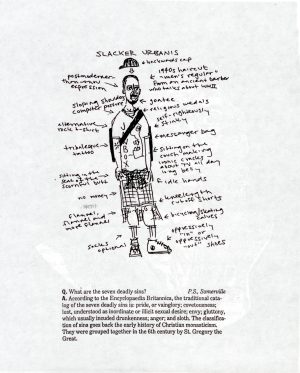 SLACKER URBANIS
backwards cap
postmoderner
than thou
expression
1940s haircut
"men's regular"
from an ancient barber
who talks about WWII
sloping shoulders
computer posture
goatee
religious medals
self-righteously
stinky
alternative
rock t-shirt
messenger bag
tribalesque
tattoo
sitting on the
couch making
ironic circles
about TV all day
long
sitting in the
seat of the
scornful butt
idle hands
no money
knee length
cutoff shorts
flannel,
flannel and
more flannel
bicycling/skating
calves
oppressively
"in" or
oppressively
"out" shoes
socks
optional
Q. What are the seven deadly sins? P.S., Somerville
A. According to the Encyclopaedia Britannica, the traditional cata-
log of the seven deadly sins is: pride, or vainglory; covetousness;
lust, understood as inordinate or illicit sexual desire; envy; gluttony,
which usually included drunkenness; anger; and sloth. The classifica-
tion of sins goes back to the early history of Christian monasticism.
They were grouped together in the 6th century by St. Gregory the
Great.